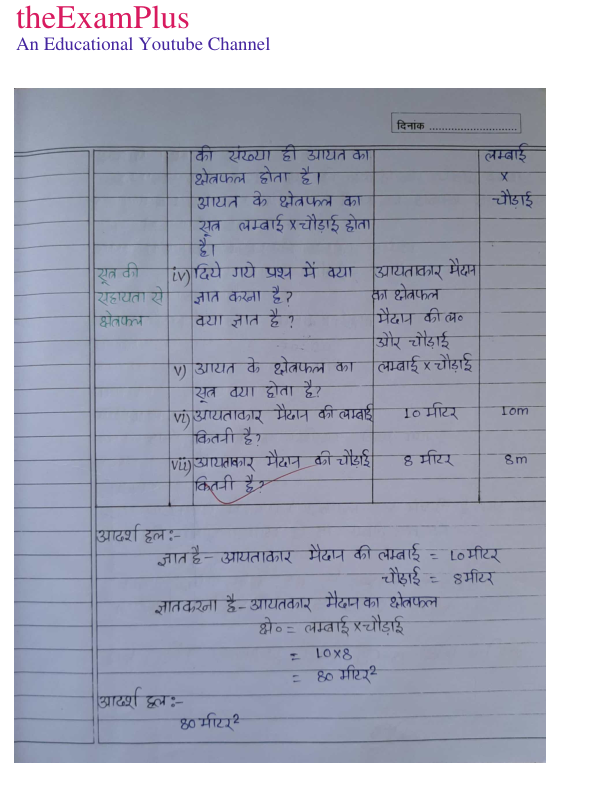 theExamPlus
An Educational Youtube Channel
दिनांक ..............................
की संख्या ही आयत का
क्षेत्रफल होता है।
आयत के क्षेत्रफल का
सूत्र लम्बाई x चौड़ाई होता
है।
लम्बाई
x
चौड़ाई
सूत्र की
सहायता से
क्षेत्रफल
iv) दिये गये प्रश्न में क्या
ज्ञात करना है?
क्या ज्ञात है ?
आयताकार मैदान
का क्षेत्रफल
मैदान की ल०
और चौड़ाई
v) आयत के क्षेत्रफल का
सूत्र क्या होता है?
लम्बाई x चौड़ाई
vi) आयताकार मैदान की लम्बाई
कितनी है?
10 मीटर
10m
vii) आयताकार मैदान की चौड़ाई
कितनी है?
8 मीटर
8m
आदर्श हल:-
ज्ञात है- आयताकार मैदान की लम्बाई = 10 मीटर
चौड़ाई = 8 मीटर
ज्ञात करना है- आयतकार मैदान का क्षेत्रफल
क्षे० = लम्बाई x चौड़ाई
= 10x8
= 80 मीटर²
आदर्श हल:-
80 मीटर²